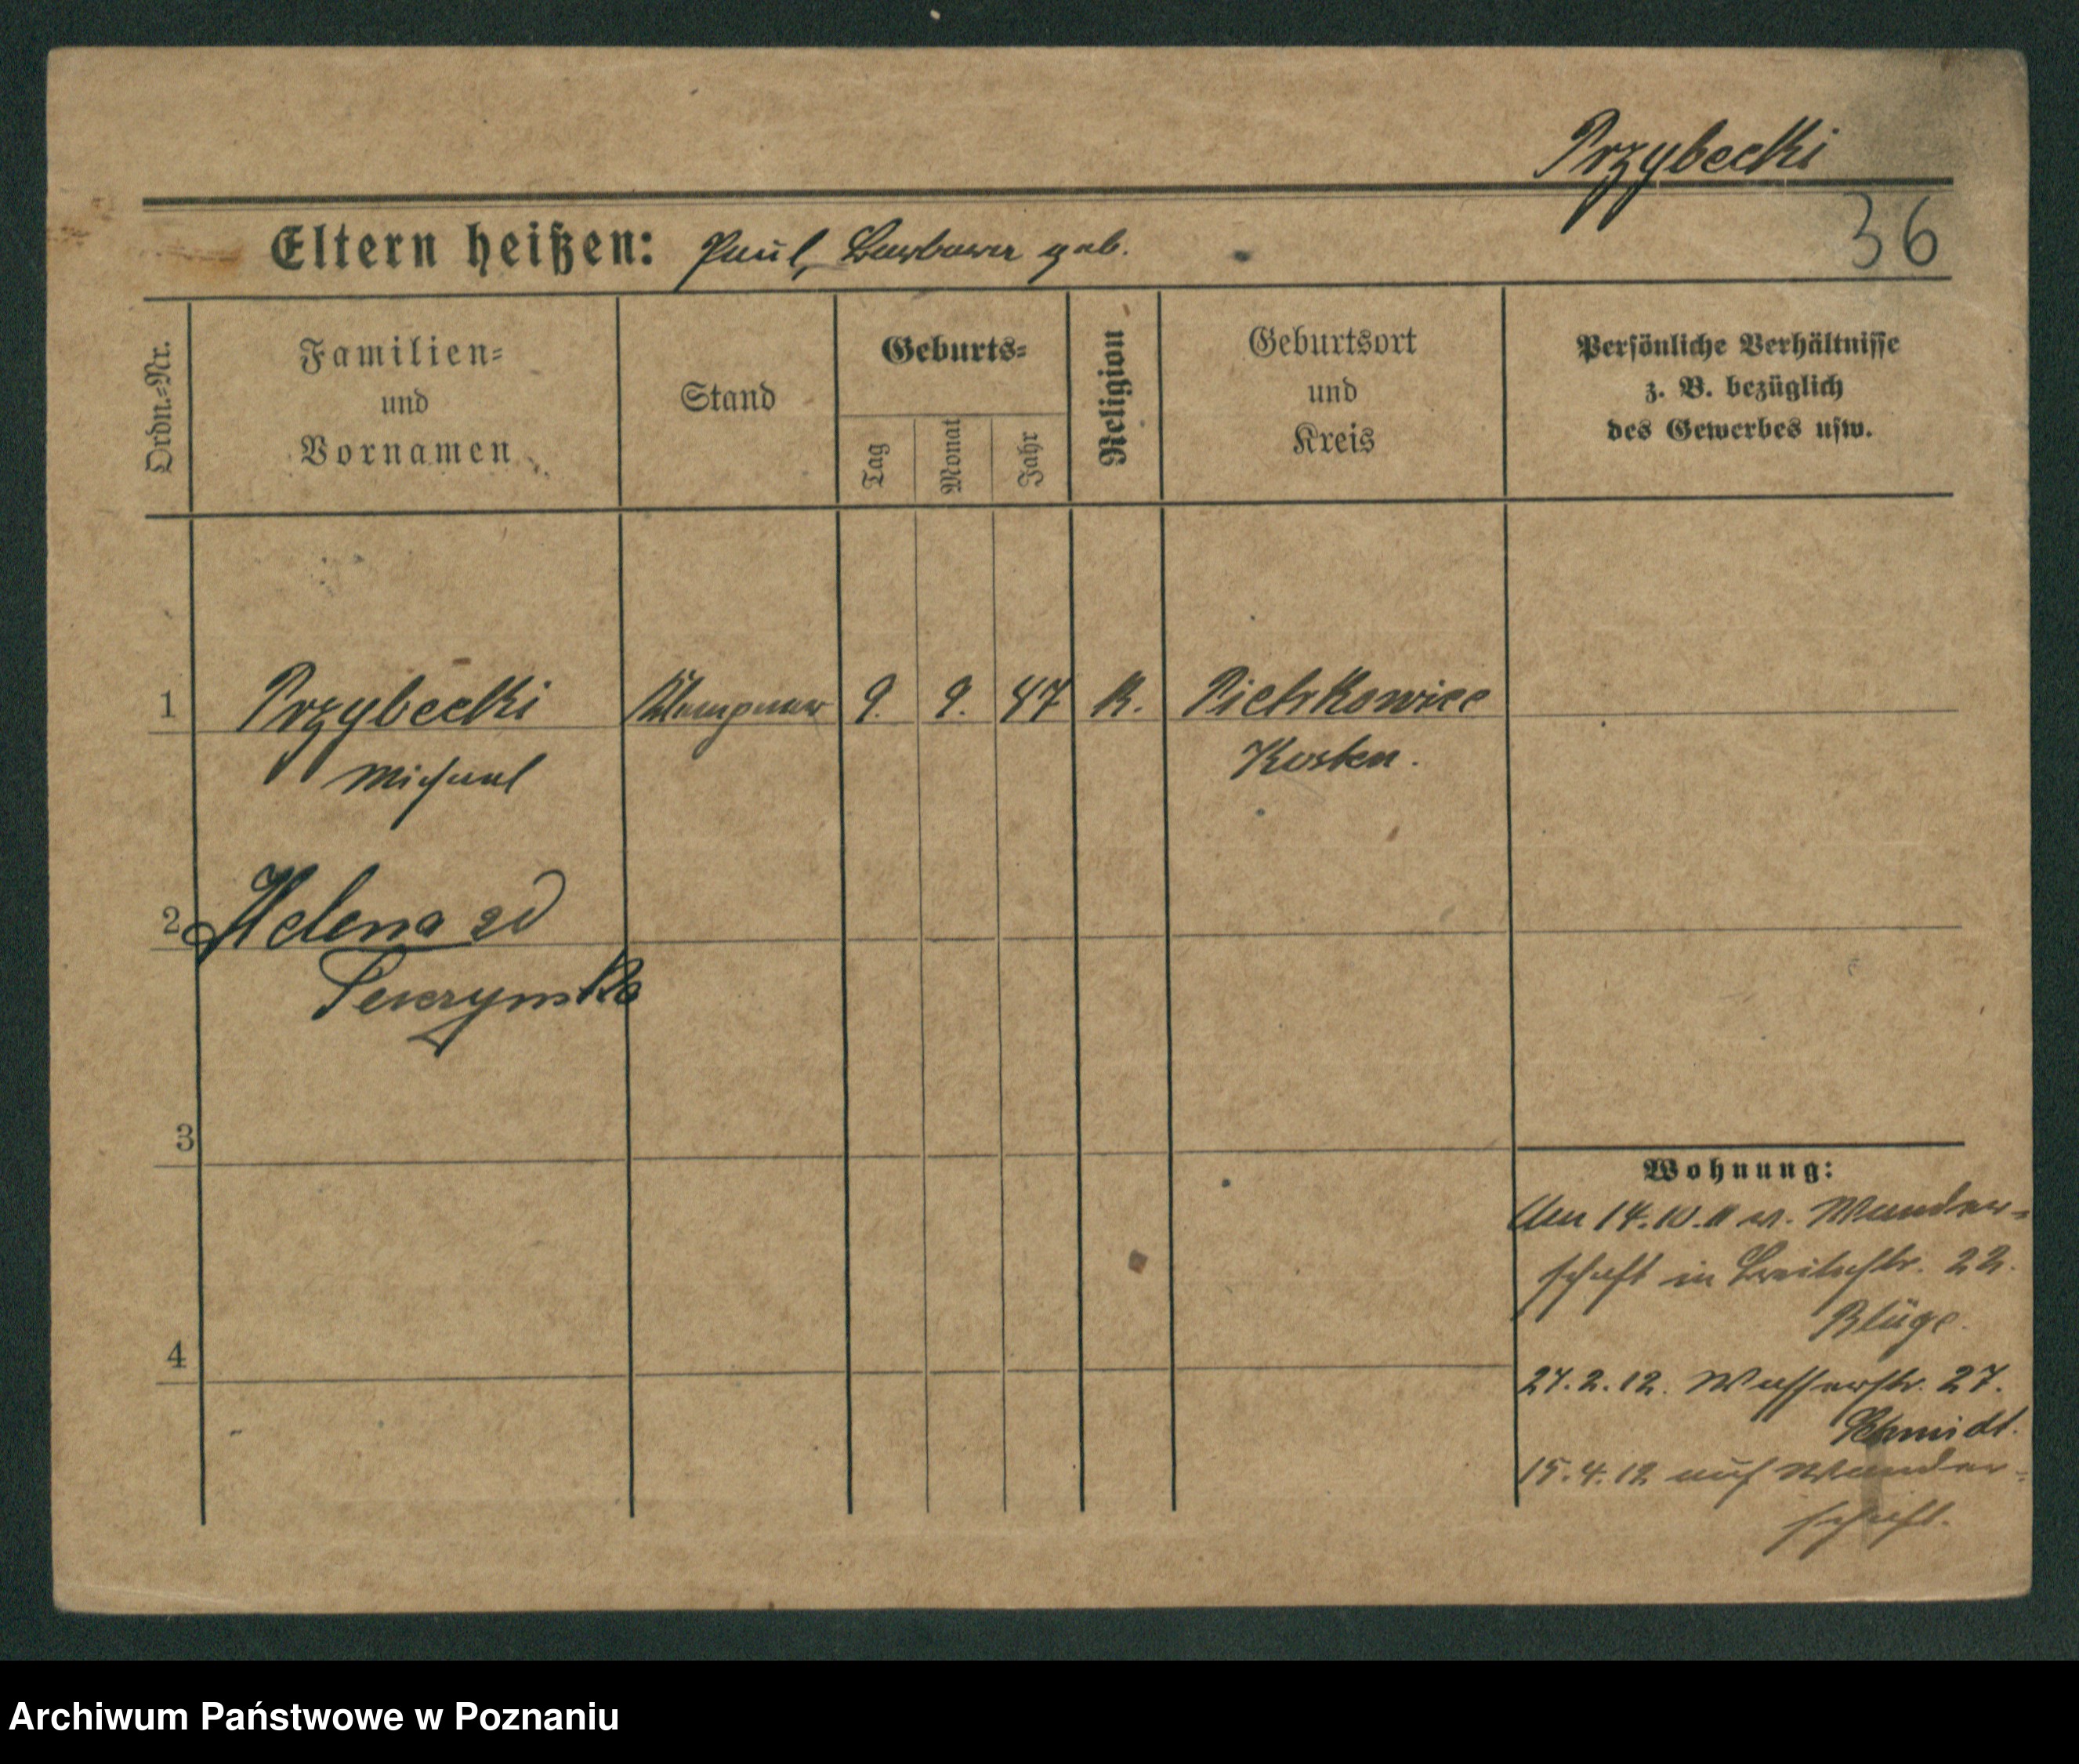 Przybecki
36
Eltern heißen: Paul, Barbara geb.
Ordn.=Nr.
Familien=
und
Vornamen
Stand
Geburts=
Tag
Monat
Jahr
Religion
Geburtsort
und
Kreis
Persönliche Verhältnisse
z. B. bezüglich
des Gewerbes usw.
1 Przybecki Klempner 9. 9. 47 K. Pietrkowice
Michael Kosten.
2 Helena
3
4
Wohnung:
14.10.11 v. Wander=
schaft in Breitestr. 22.
Klüge.
27.2.12. Wasserstr. 27.
Schmidt.
15.4.12 auf Wander=
schaft.
Archiwum Państwowe w Poznaniu